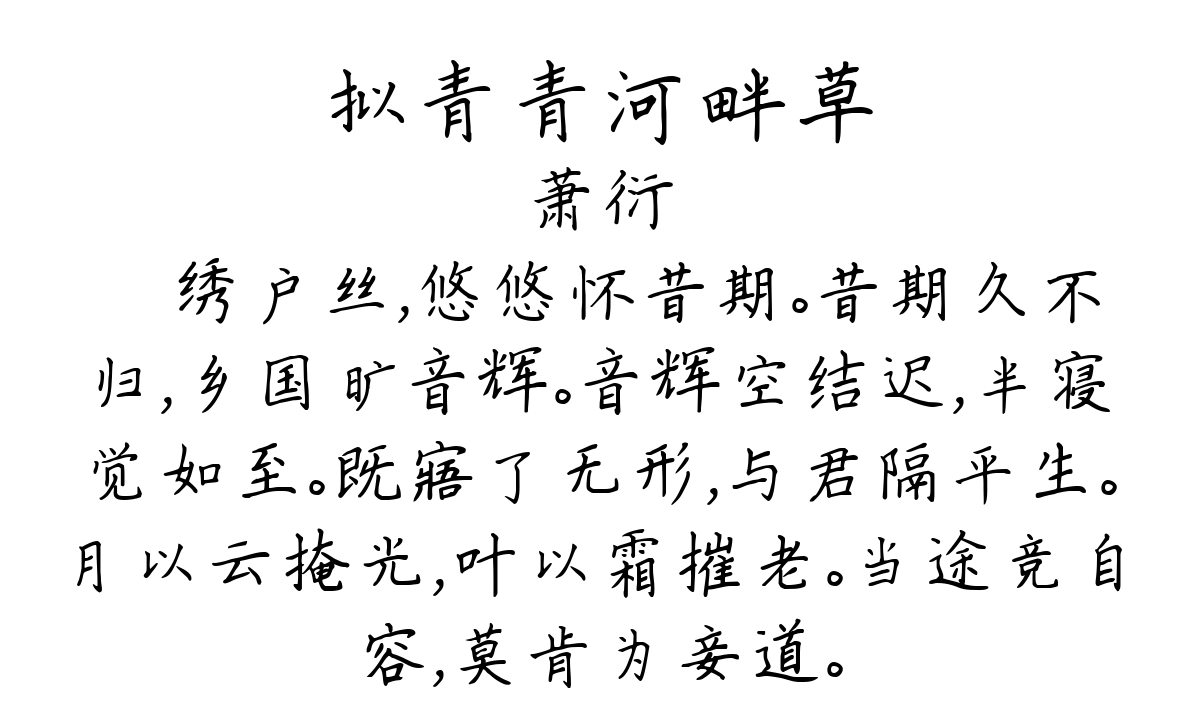 拟青青河畔草
萧衍
绣户丝,悠悠怀昔期。昔期久不
归,乡国旷音辉。音辉空结迟,半寝
觉如至。既寤了无形,与君隔平生。
月以云掩光,叶以霜摧老。当途竞自
容,莫肯为妾道。